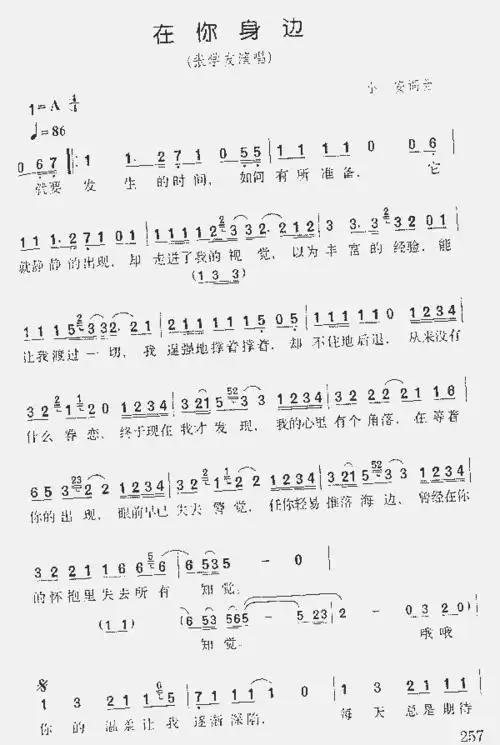 在你身边
(张学友演唱)
1=A 4/4
小 安 词曲
♩=86
0 6 7 1 1. 2 7 1 0 5 5 1 1 1 1 0 0 6
就要 发 生 的时间, 如何 有 所 准备. 它
1 1 1. 2 7 1 0 1 1 1 1 1 2 3 3 2. 2 1 2 3 3 3. 3 3 2 0 1
就静静 的出现, 却 走进了我的 视 觉, 以为 丰 富 的 经验, 能
(1 3 3)
1 1 1 5 3 3 2. 2 1 2 1 1 1 1 1 1 1 0 5 1 1 1 1 0 1 2 3 4
让我渡过 一 切, 我 逞强地撑着撑着, 却 不住地后退, 从来没有
3 2 1 2 0 1 2 3 4 3 2 1 5 3 3 1 2 3 4 3 2 2 2 2 1 1 6
什么 眷 恋, 终于现在 我才 发 现, 我的心里 有个 角落, 在 等着
6 5 3 2 2 1 2 3 4 3 2 1 2 1 2 3 4 3 2 1 5 3 3 1 2 3 4
你的 出 现, 眼前早已 失去 警 觉, 任你轻易 推落 海 边, 曾经在你
3 2 2 2 1 1 6 6 6 5 3 5 - 0
的怀抱里失去所有 知觉.
(1 1) (6 5 3 5 6 5 - 5 2 3 2 - 0 3 2 0)
知觉. 哦哦
1 3 2 1 1 5 7 1 1 1 0 1 3 2 1 1 1
你 的 温柔让 我 逐渐 深陷, 每 天 总是 期待
257